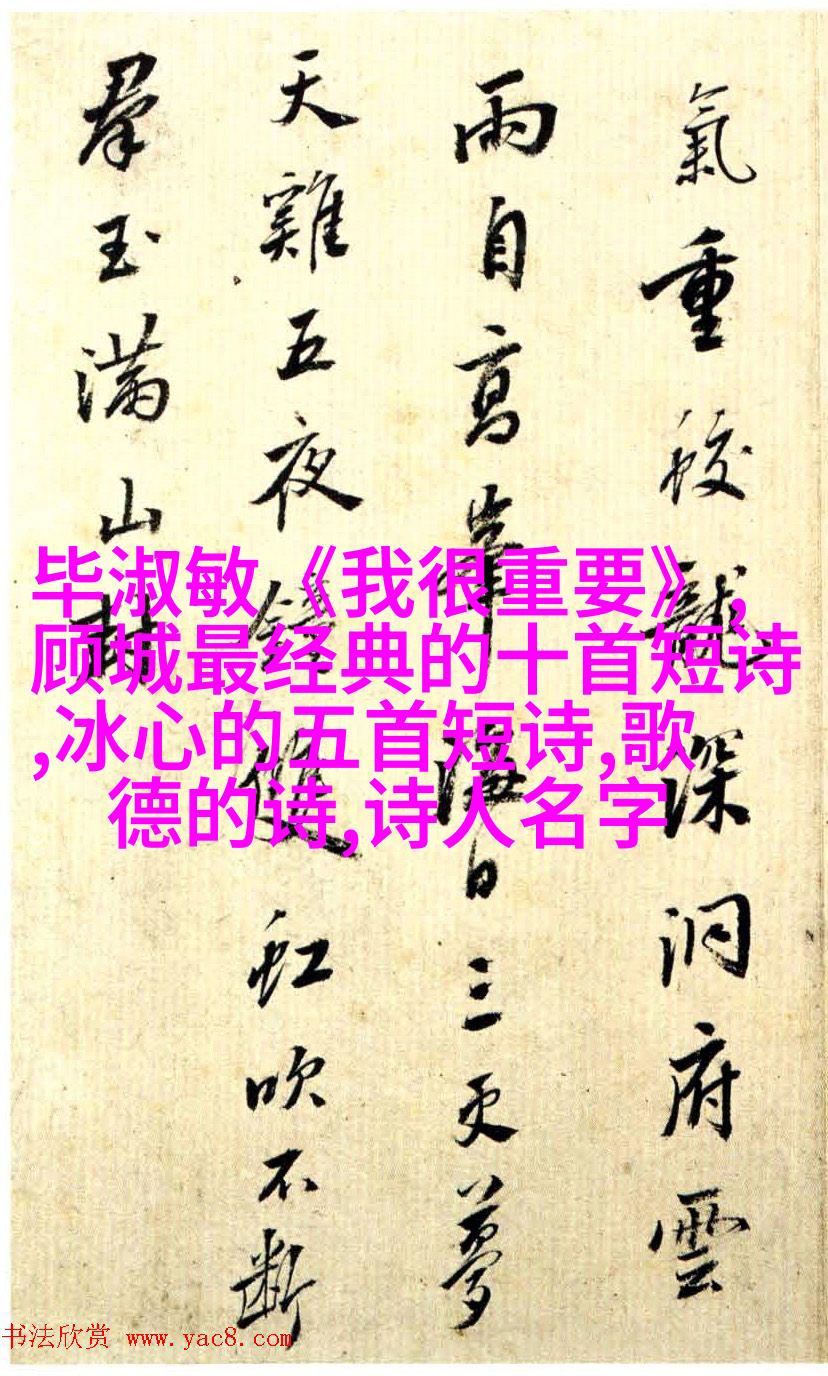 氣重蛟龍深洞府雲
雨自高峯海日三更夢
天雞五夜鐘暖虹吹不斷
羣玉滿山封
毕淑敏《我很重要》,
顾城最经典的十首短诗
,冰心的五首短诗,歌
德的诗,诗人名字
书法欣赏 www.yac8.com